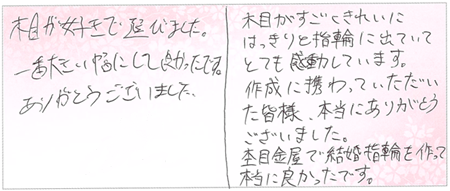 木目が好きで選びました。
一番大きい幅にして良かったです。
ありがとうございました。
木目がすごくきれいに
はっきりと指輪に出ていて
とても感動しています。
作成に携わっていただい
た皆様、本当にありがとう
ございました。
杢目金屋で結婚指輪を作って
本当に良かったです。